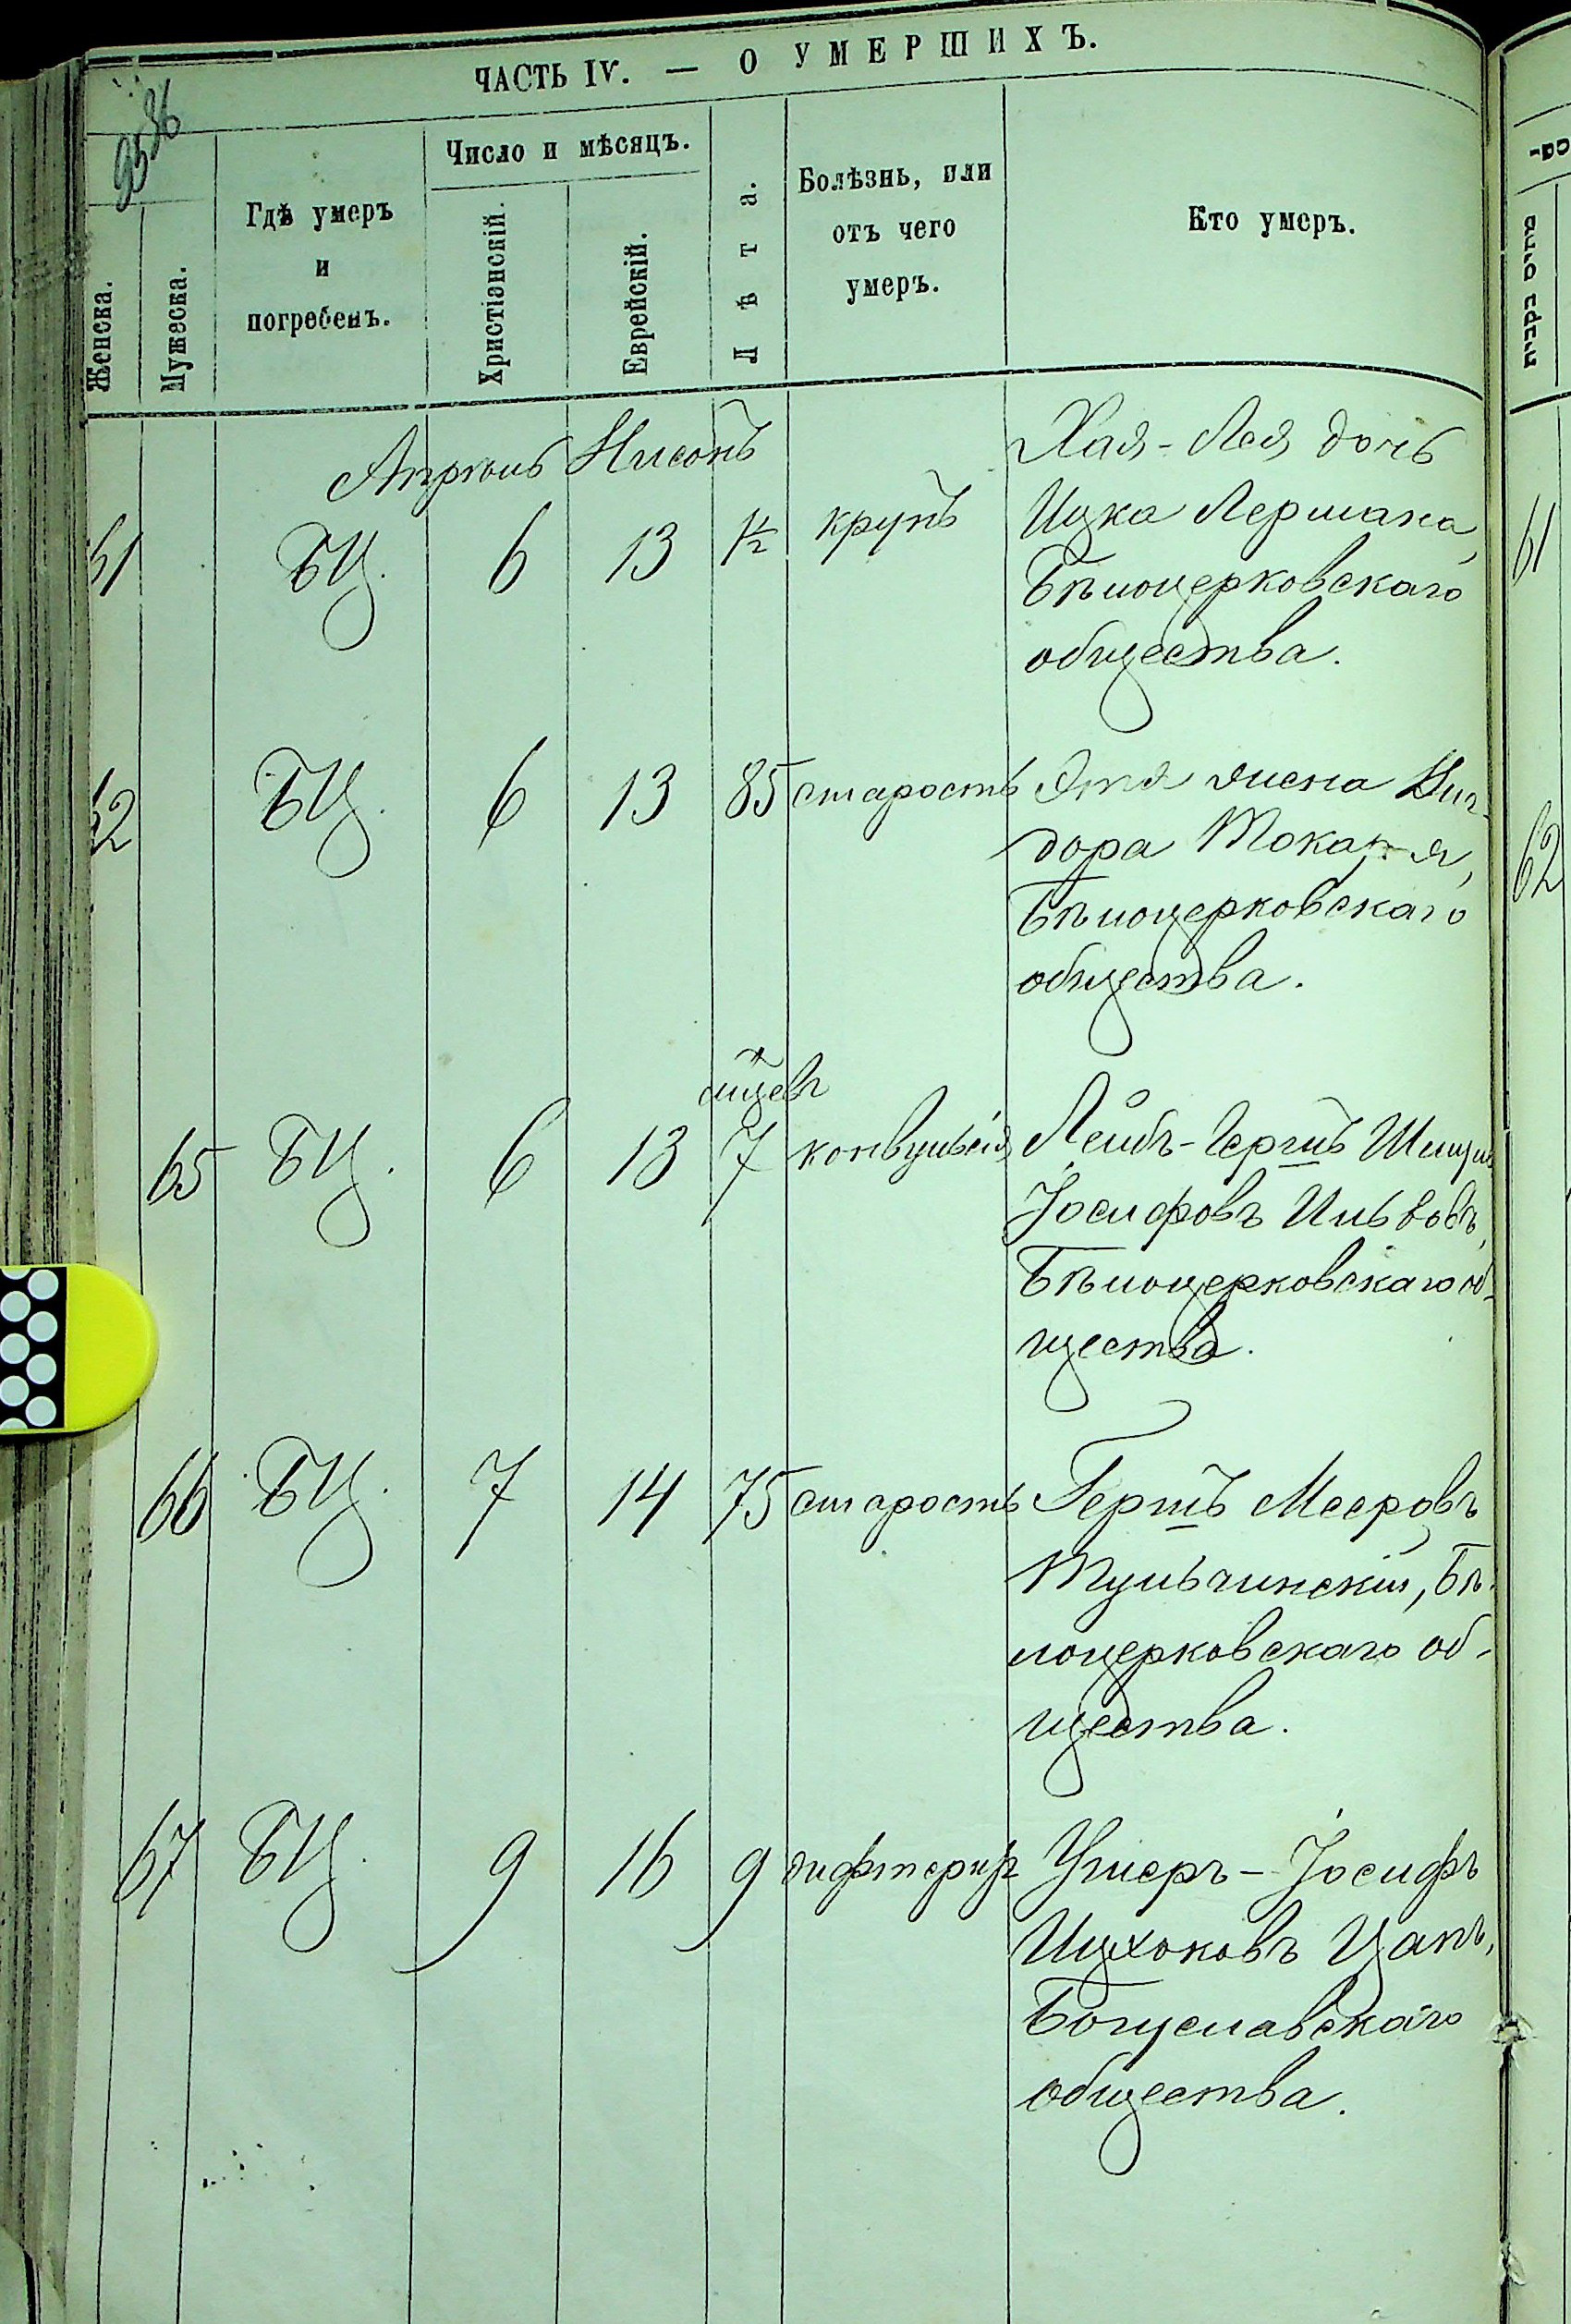 ЧАСТЬ IV. — О УМЕРШИХЪ.
Женска.
Мужеска.
Гдѣ умеръ
и
погребенъ.
Число и мѣсяцъ.
Христіанскій.
Еврейскій.
Лѣта.
Болѣзнь, или
отъ чего
умеръ.
Кто умеръ.
Апрѣль Нисонъ
61 БЦ. 6 13 1/2 крупъ Хая-Лея дочь
Ицка Лермана,
Бѣлоцерковскаго
общества.
62 БЦ. 6 13 85 старость Этя жена Виг-
дора Токаря,
Бѣлоцерковскаго
общества.
65 БЦ. 6 13 7 мцевъ конвульсія Лейбъ-Гершъ
Іосифовъ
Бѣлоцерковскаго об-
щества.
66 БЦ. 7 14 75 старость Гершъ Мееровъ
Тульчинскій, Бѣ-
лоцерковскаго об-
щества.
67 БЦ. 9 16 9 дифтеритъ Ушеръ-Іосифъ
Ицхоковъ Цапъ,
Богуславскаго
общества.
61
62